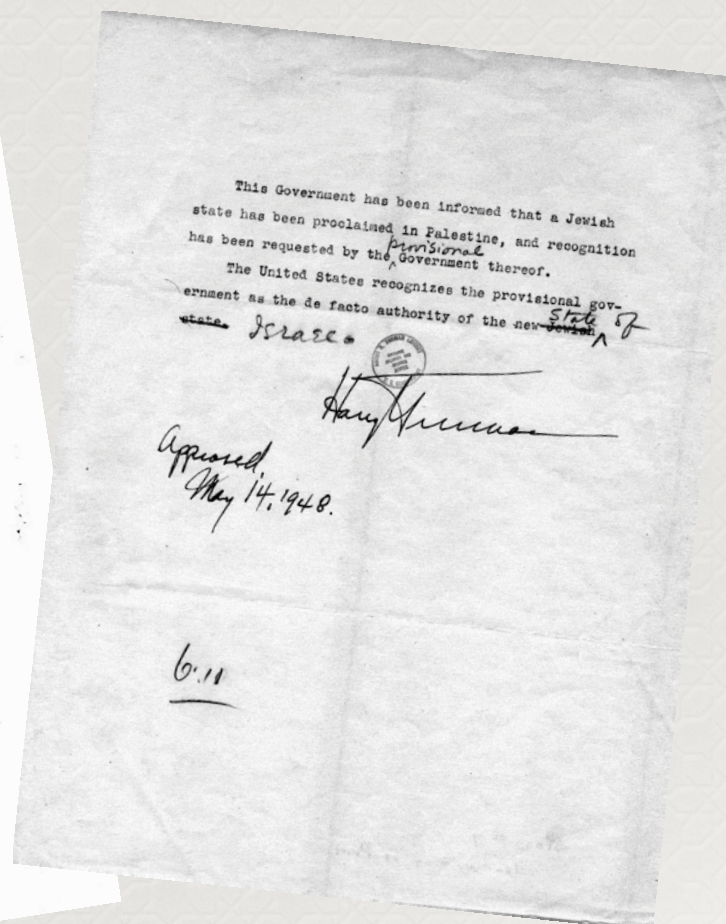 This Government has been informed that a Jewish
state has been proclaimed in Palestine, and recognition
has been requested by the provisional Government thereof.
The United States recognizes the provisional gov-
ernment as the de facto authority of the new Jewish State of
state. Israel.
Harry Truman
Approved,
May 14, 1948.
6.11